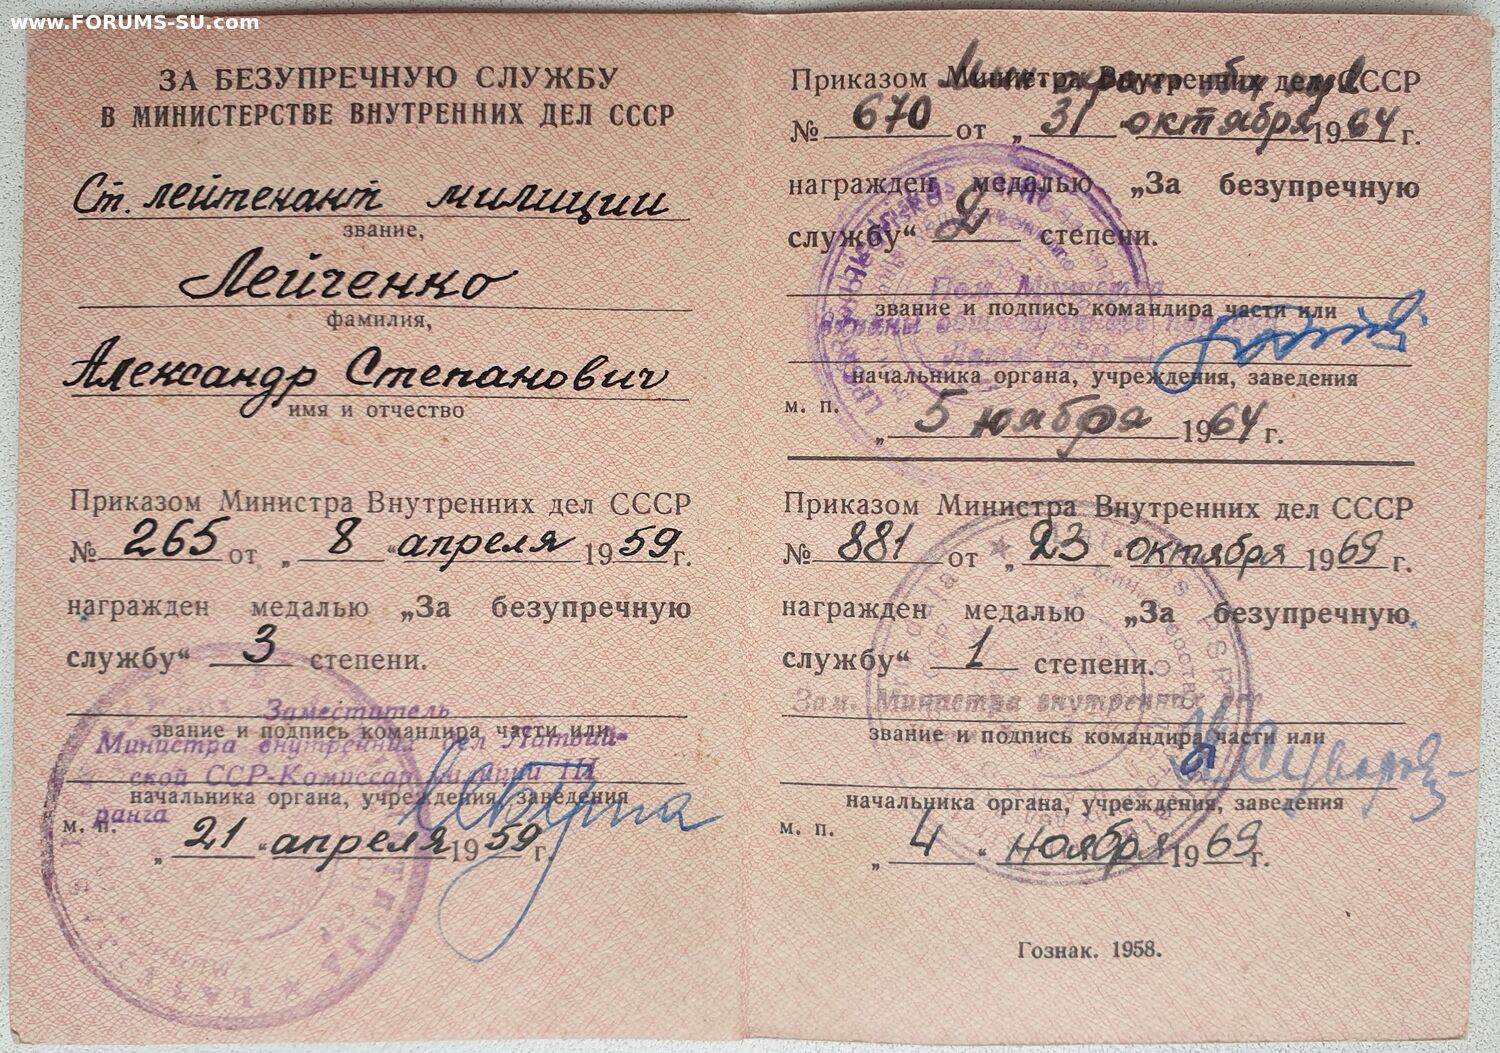 www.FORUMS-SU.com
ЗА БЕЗУПРЕЧНУЮ СЛУЖБУ
В МИНИСТЕРСТВЕ ВНУТРЕННИХ ДЕЛ СССР
Ст. лейтенант милиции
звание,
Лейченко
фамилия,
Александр Степанович
имя и отчество
Приказом Министра Внутренних дел СССР
№ 265 от „ 8 “ апреля 1959 г.
награжден медалью „За безупречную
службу“ 3 степени.
Заместитель
звание и подпись командира части или
Министра внутренних дел Латвий-
ской ССР-Комиссар милиции III
начальника органа, учреждения, заведения
ранга
м. п.
„ 21 “ апреля 1959 г.
Приказом Министра Внутренних дел СССР
№ 670 от „ 31 “ октября 1964 г.
награжден медалью „За безупречную
службу“ 2 степени.
Пом. Министра
звание и подпись командира части или
охраны общественного порядка
Латв. ССР —
начальника органа, учреждения, заведения
м. п.
„ 5 ноября 1964 г.
Приказом Министра Внутренних дел СССР
№ 881 от „ 23 “ октября 1969 г.
награжден медалью „За безупречную
службу“ 1 степени.
Зам. Министра внутренних дел
звание и подпись командира части или
начальника органа, учреждения, заведения
м. п.
„ 4 “ ноября 1969 г.
Гознак. 1958.